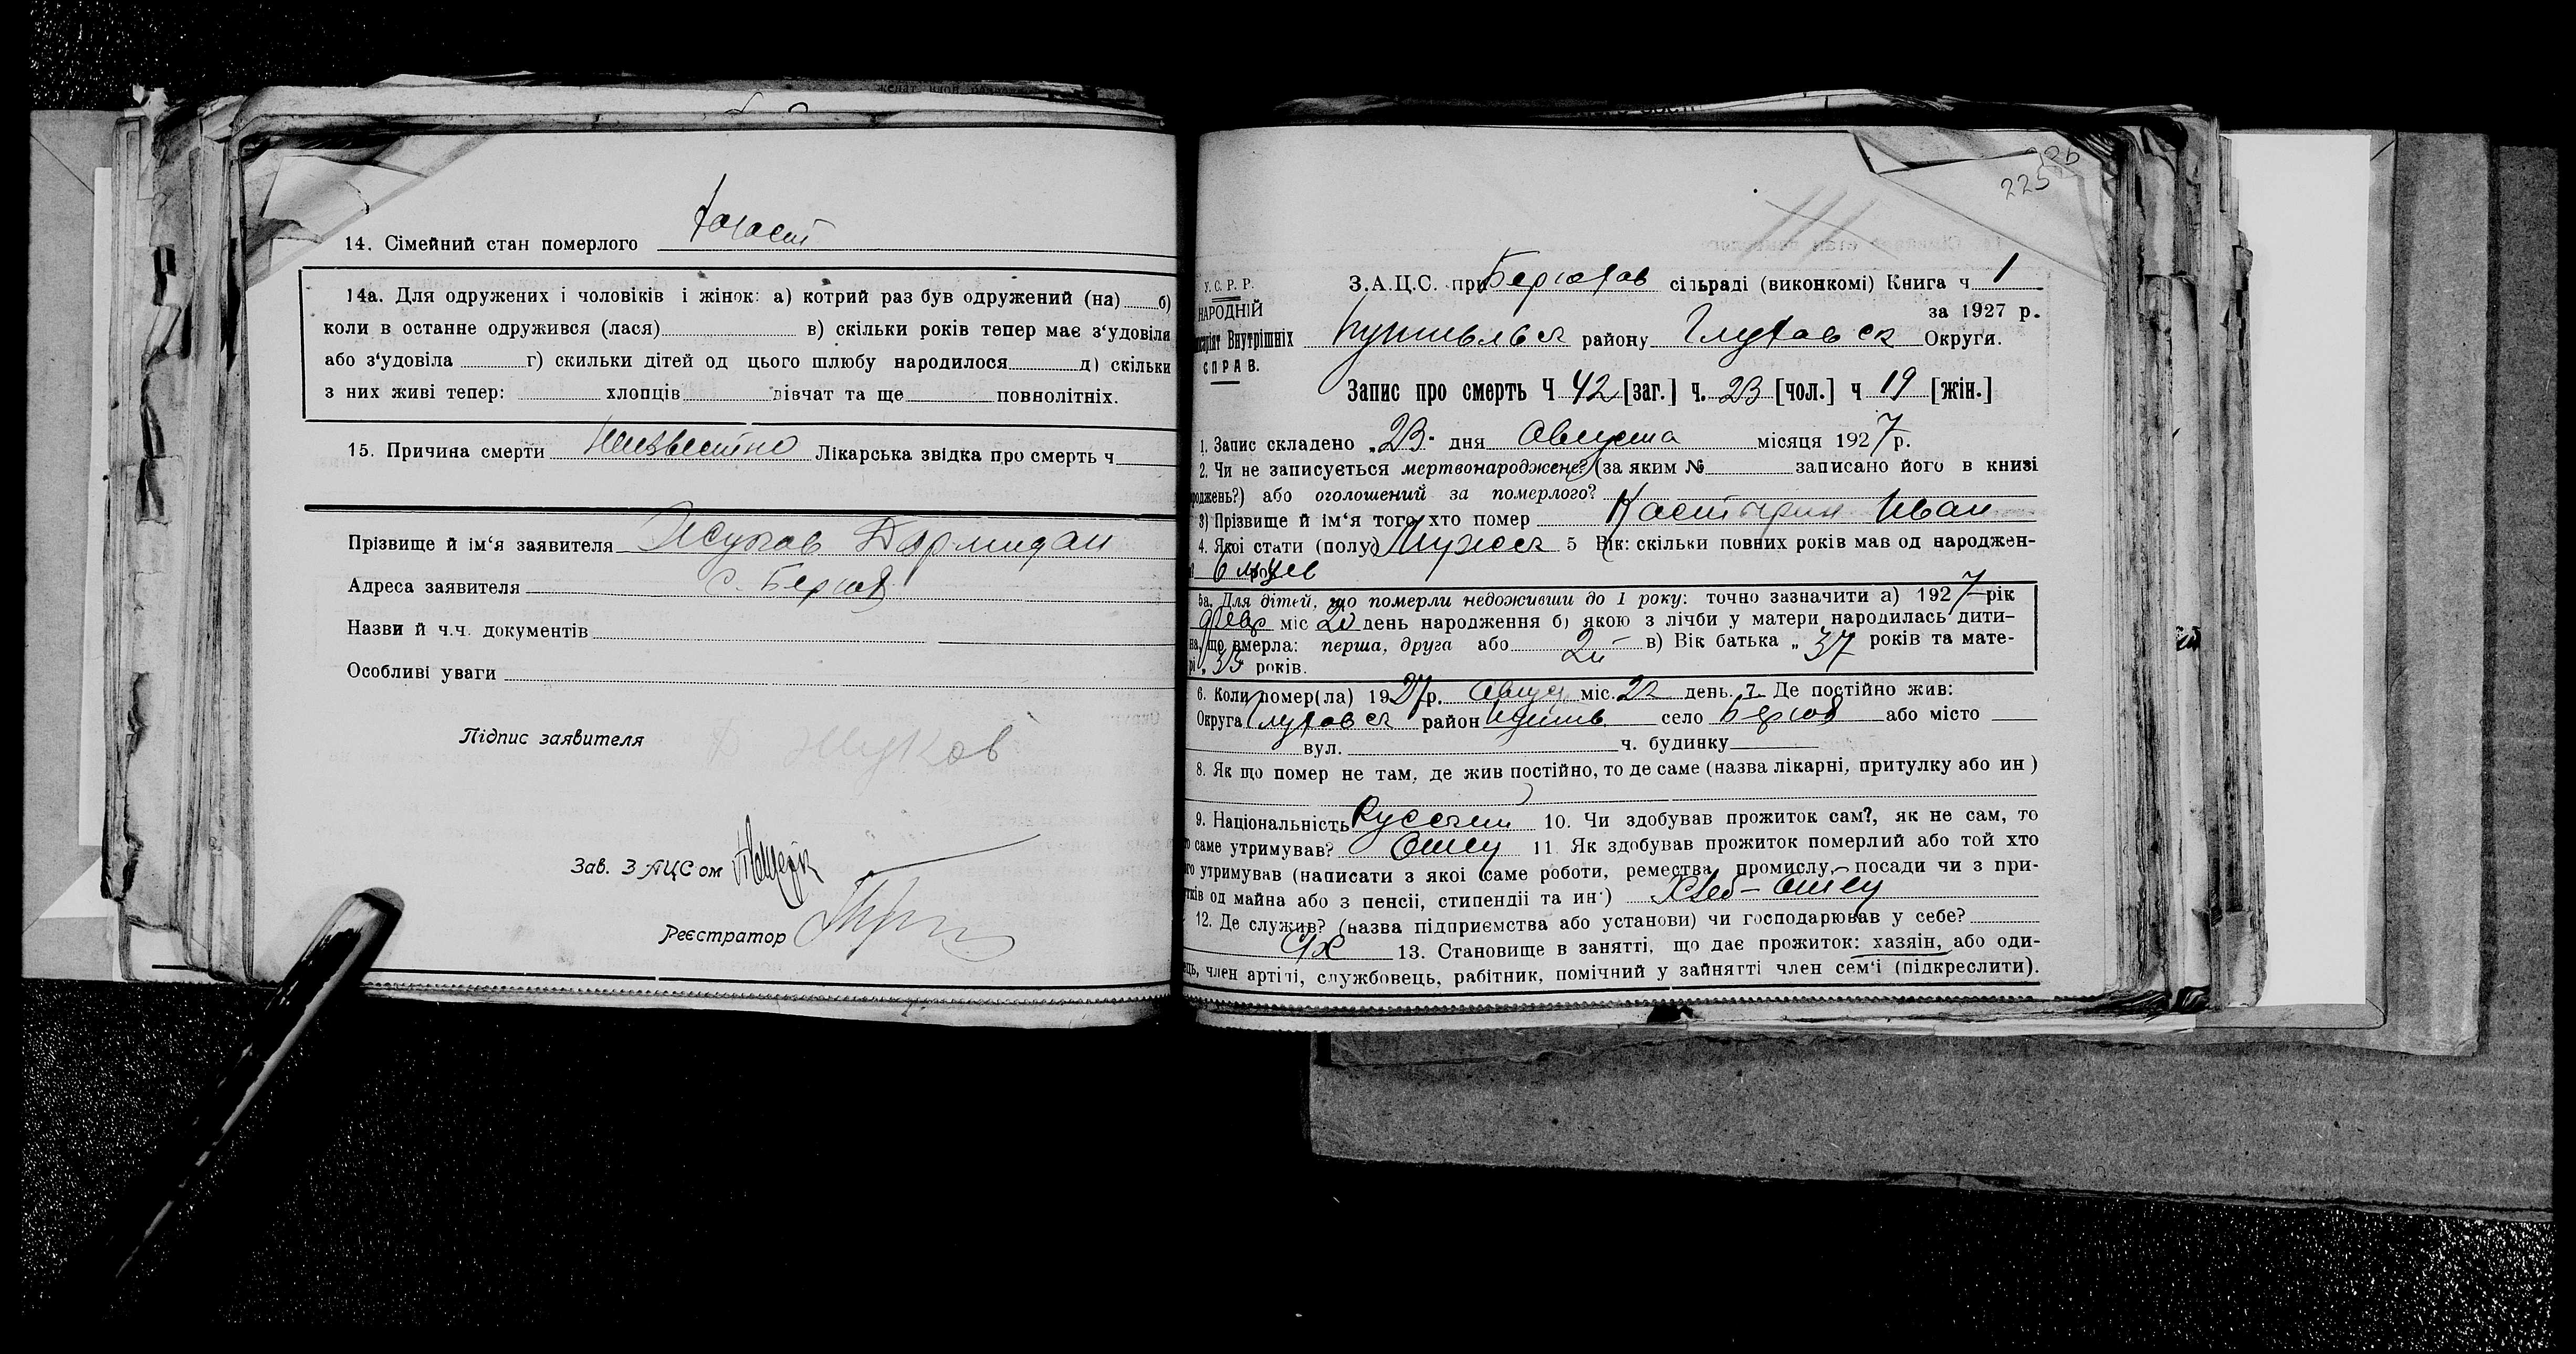 14. Сімейний стан померлого холост
14а. Для одружених і чоловіків і жінок: а) котрий раз був одружений (на) б)
коли в останне одружився (лася) в) скільки років тепер має з'удовіля
або з'удовіла г) скильки дітей од цього шлюбу народилося д) скільки
з них живі тепер: хлопців дівчат та ще повнолітніх.
15. Причина смерти Неизвестно Лікарська звідка про смерть ч
Прізвище й ім'я заявителя Жуков Дормидан
Адреса заявителя с. Берюх
Назви й ч.ч. документів
Особливі уваги
Підпис заявителя Д Жуков
Зав. ЗАЦС'ом
Реєстратор
225
У.С.Р.Р. З.А.Ц.С. при Берюхов сільраді (виконкомі) Книга ч 1
НАРОДНІЙ за 1927 р.
Внутрішніх Путивльск району Глуховск Округи.
СПРАВ.
Запис про смерть Ч 42 [заг.] ч. 23 [чол.] ч 19 [жін.]
1. Запис складено „23" дня Августа місяця 1927 р.
2. Чи не записується мертвонароджене? (за яким № записано його в книзі
роджень?) або оголошений за померлого?
3) Прізвище й ім'я того хто помер Костырин Иван
4. Якої стати (полу) Мужск 5 Вік: скільки повних років мав од народжен-
6 мцев
5а. Для дітей, що померли недоживши до 1 року: точно зазначити а) 1927 рік
февр міс 20 день народження б) якою з лічби у матери народилась дити-
на, що вмерла: перша, друга або 2й в) Вік батька „37 років та мате-
рі „35 років.
6. Коли помер(ла) 1927 р. Август міс. 22 день. 7. Де постійно жив:
Округа Глуховск район Путивл село Берюх або місто
вул. ч. будинку
8. Як що помер не там, де жив постійно, то де саме (назва лікарні, притулку або ин)
9. Національність Русский 10. Чи здобував прожиток сам?, як не сам, то
саме утримував? Отец 11. Як здобував прожиток померлий або той хто
го утримував (написати з якоі саме роботи, ремества, промислу, посади чи з при-
тків од майна або з пенсії, стипендії та ин.) Хлеб- Отец
12. Де служив? (назва підприємства або установи) чи господарював у себе?
С/Х 13. Становище в занятті, що дає прожиток: хазяін, або оди-
ець, член артілі, службовець, рабітник, помічний у зайнятті член сем'ї (підкреслити).